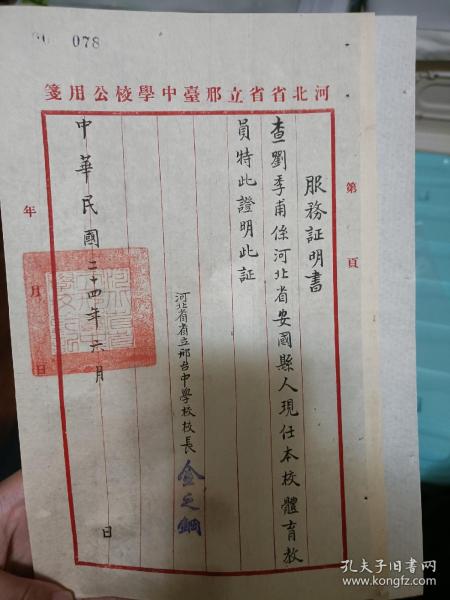 078
河北省省立邢臺中學校公用箋
第 頁
服務証明書
查劉季甫係河北省安國縣人現任本校體育教
員特此證明此証
河北省省立邢台中學校校長 金之鋼
中華民國二十四年六月 日
年 月 日
孔夫子旧书网
www.kongfz.com